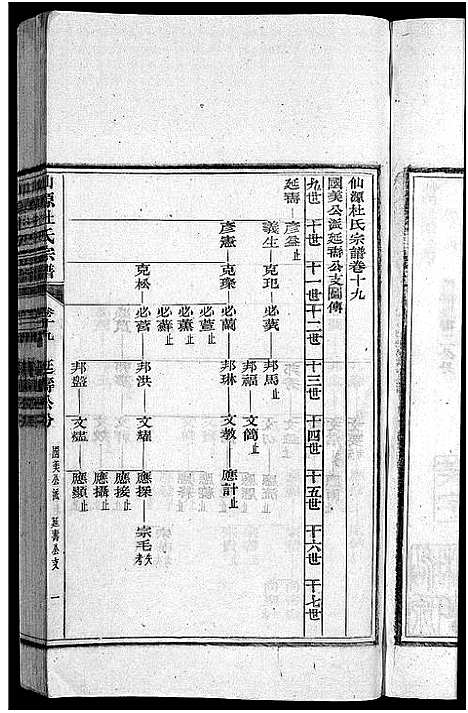 仙源杜氏宗譜卷十九
國美公派延壽公支圖傳
九世 十世 十一世 十二世 十三世 十四世 十五世 十六世 十七世
延壽 彥益止
義生 克玘 必蓂 邦馬止
邦福 文簡止
彥憲 克瓈 必蘭 邦琳 文教 應計止
必萱止
必薰止
克松 必蒼 邦洪 文燧 應採 宗毛夭
應接止
應攝止
邦盤 文爐 應顯止
仙源杜氏宗譜 卷十九 延壽公分 國美公派 延壽公支 一